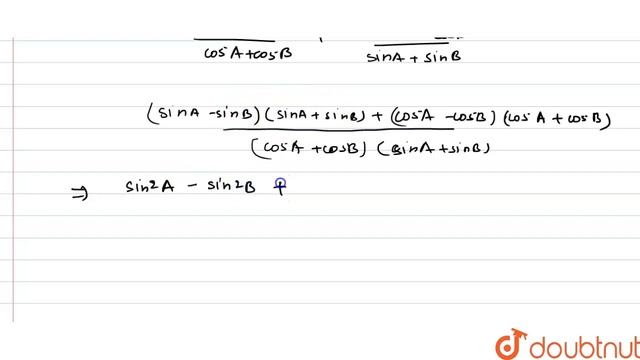 cosA+cosB sinA + sinB
(sinA - sinB) (sinA + sinB) + (cosA - cosB) (cosA + cosB)
(cosA + cosB) (sinA + sinB)
⇒ sin2A - sin2B +
doubtnut